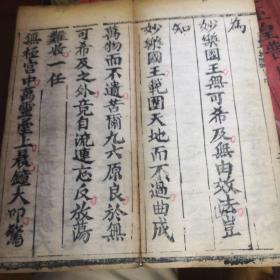 為
妙樂國王無可希及無由效法豈
知
妙樂國王範圍天地而不過曲成
萬物而不遺苦爾九六原良於無
可希及之外竟自流連忘反放蕩
難收一任
無極宮中萬靈臺上晨鐘大叩驚